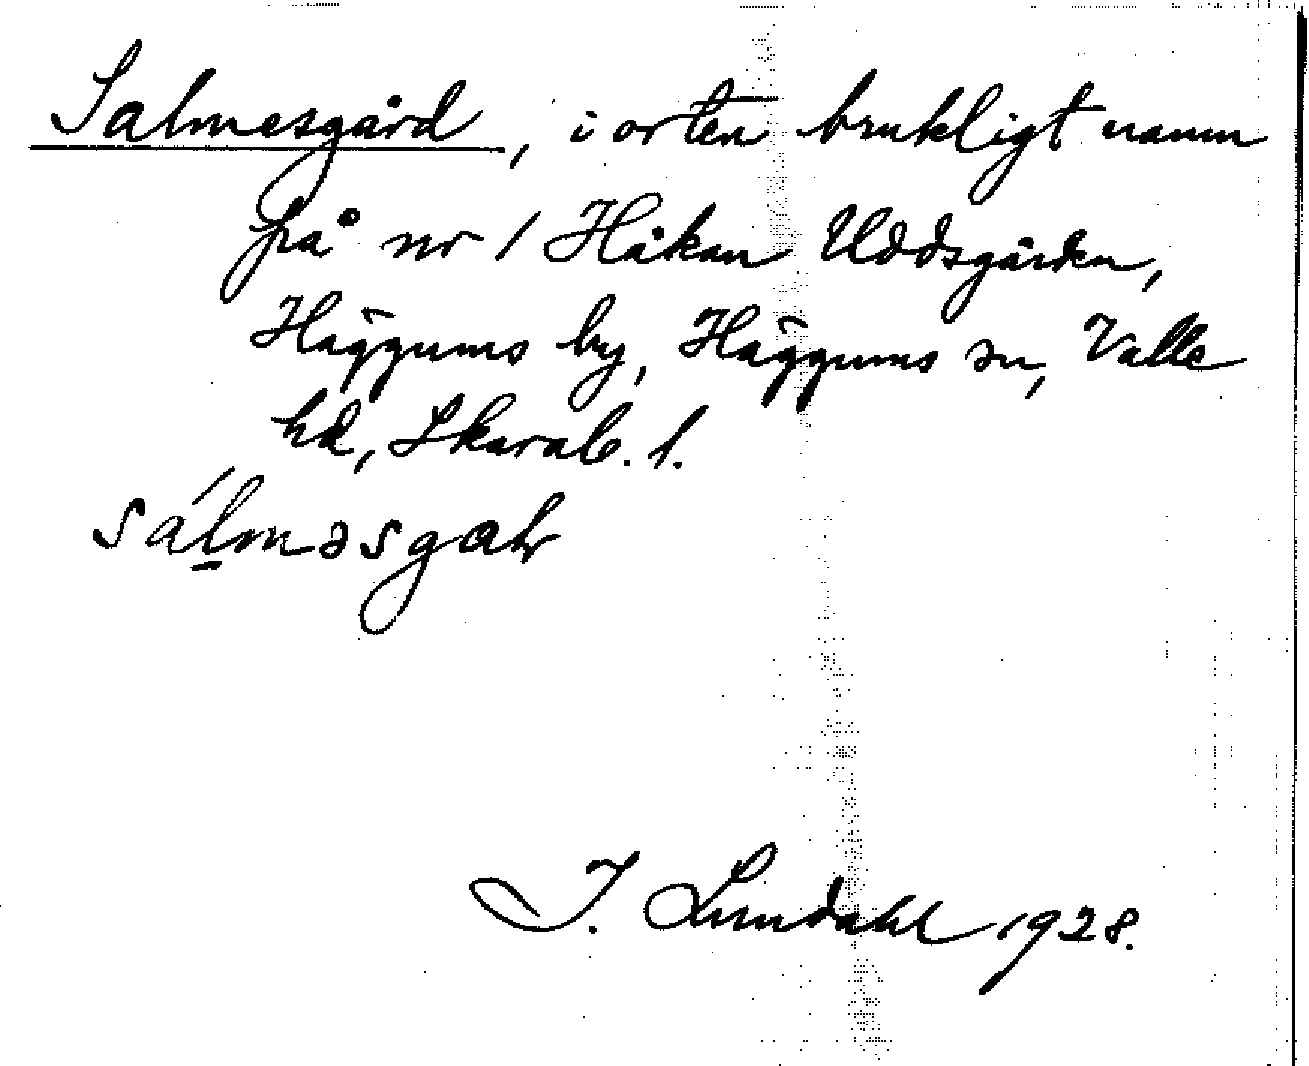 Salmesgård, i orten brukligt namn
på nr 1 Håkan Uddsgården,
Häggums by, Häggums sn, Valle
hd, Skarab. l.
sálməsgaɽ
I. Lundahl 1928.